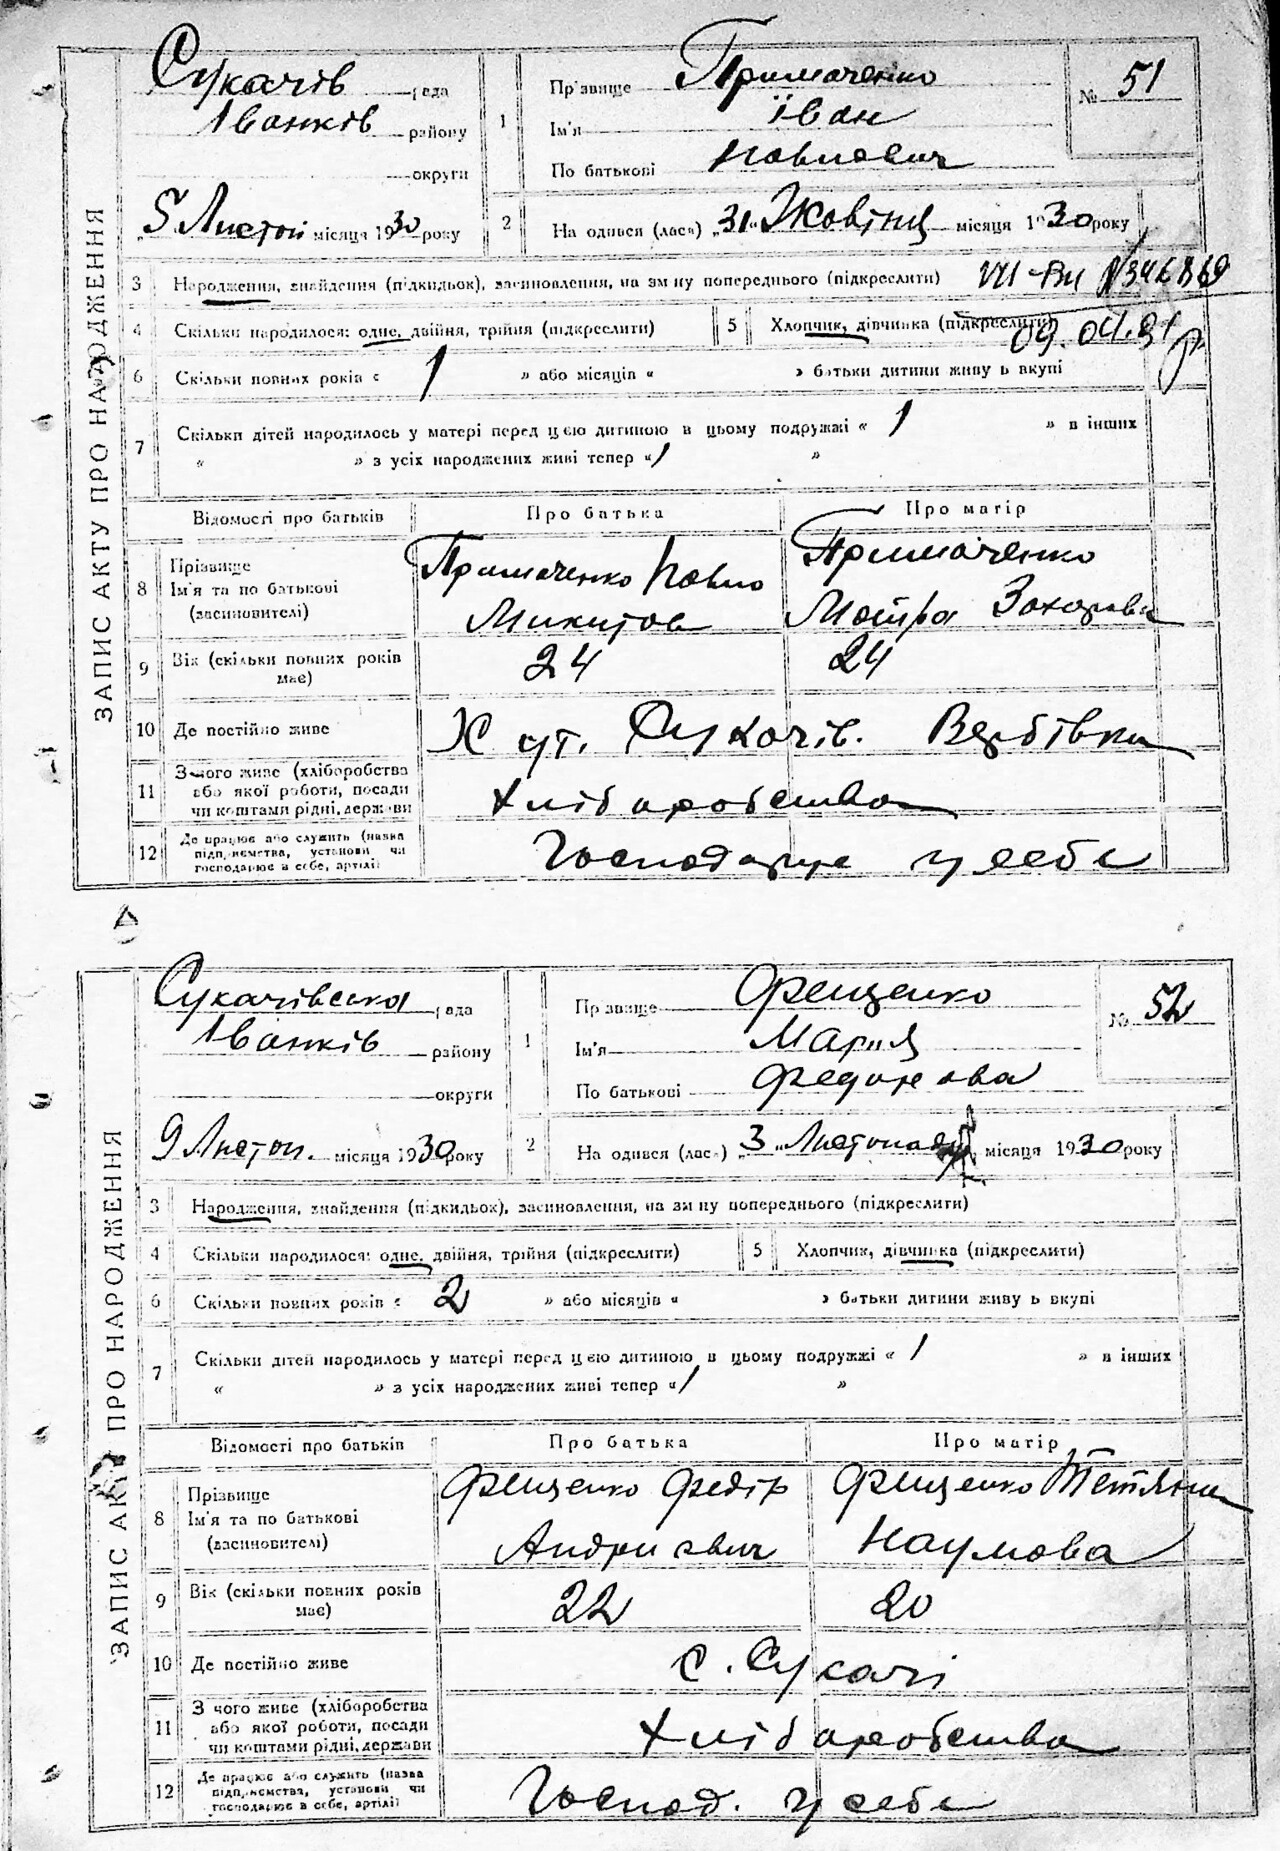 ЗАПИС АКТУ ПРО НАРОДЖЕННЯ
Сукачів рада
Іванків району
округи
5 Листоп місяця 1930 року
1
Прізвище Примаченко
Ім'я Їван
По батькові Павлович
№ 51
2
На одився (лась) „31" Жовтня місяця 1930 року
3 Народження, знайдення (підкидьок), засиновлення, на зміну попереднього (підкреслити)
4 Скільки народилося: одне, двійня, трійня (підкреслити)
5 Хлопчик, дівчинка (підкреслити)
09.04.91
6 Скільки повних років « 1 » або місяців « » батьки дитини живуть вкупі
7 Скільки дітей народилось у матері перед цією дитиною в цьому подружжі « 1 » в інших
« » з усіх народжених живі тепер « 1 »
Відомості про батьків Про батька Про матір
8 Прізвище
Ім'я та по батькові
(засиновителі)
Примаченко Павло
Микитов
Примаченко
Мотря Захарова
9 Вік (скільки повних років
має)
24 24
10 Де постійно живе Хут. Сукачів. Вербівка
11 З чого живе (хліборобства
або якої роботи, посади
чи коштами рідні, держави
Хліборобства
12 Де працює або служить (назва
підприємства, установи чи
господарює в себе, артілі)
Господарує у себе
ЗАПИС АКТУ ПРО НАРОДЖЕННЯ
Сукачівська рада
Іванків району
округи
9 Листоп. місяця 1930 року
1
Прізвище Фещенко
Ім'я Мария
По батькові Федорова
№ 52
2
На одився (лась) „3" Листопада місяця 1930 року
3 Народження, знайдення (підкидьок), засиновлення, на зміну попереднього (підкреслити)
4 Скільки народилося: одне, двійня, трійня (підкреслити)
5 Хлопчик, дівчинка (підкреслити)
6 Скільки повних років « 2 » або місяців « » батьки дитини живуть вкупі
7 Скільки дітей народилось у матері перед цією дитиною в цьому подружжі « 1 » в інших
« » з усіх народжених живі тепер « 1 »
Відомості про батьків Про батька Про матір
8 Прізвище
Ім'я та по батькові
(засиновителі)
Фещенко Федір
Андриевич
Фещенко Тетяна
Наумова
9 Вік (скільки повних років
має)
22 20
10 Де постійно живе с. Сукачі
11 З чого живе (хліборобства
або якої роботи, посади
чи коштами рідні, держави
Хліборобства
12 Де працює або служить (назва
підприємства, установи чи
господарює в себе, артілі)
Господ. у себе